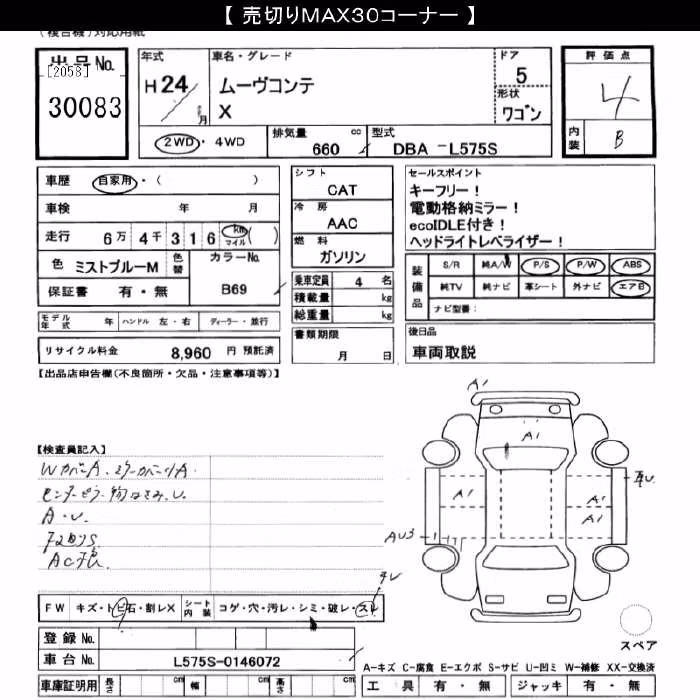 【 売切りMAX30コーナー 】
(複合機)対応用紙
出品No.
[2058]
30083
年式
H 24 / 月
車名・グレード
ムーヴコンテ
X
ドア
5
形状
ワゴン
評価点
4
内装
B
2WD・4WD
排気量
660 cc
型式
DBA -L575S
車歴 自家用・( )
車検 年 月
走行 6万 4千 3 1 6 km マイル ( )
色 ミストブルーM 色替
カラーNo.
B69
保証書 有・無
シフト
CAT
冷房
AAC
燃料
ガソリン
乗車定員 4 名
積載量 kg
総重量 kg
書類期限
月 日
セールスポイント
キーフリー！
電動格納ミラー！
ecoIDLE付き！
ヘッドライトレベライザー！
装備品
S/R 純A/W P/S P/W ABS
純TV 純ナビ 革シート 外ナビ エアB
ナビ型番:
モデル年式 年 ハンドル 左・右 ディーラー・並行
リサイクル料金 8,960 円 預託済
後日品
車両取説
【出品店申告欄(不良箇所・欠品・注意事項等)】
【検査員記入】
WカバーA.ミラーカバーリA.
センターピラー物はさみ.U.
A・U.
ACデ乱
A1
A1
A1
A1
A1
AU3
FW キズ・トビ石・割レX シート内装 コゲ・穴・汚レ・シミ・破レ・スレ
登録 No.
車台 No. L575S-0146072
車庫証明用 長さ cm 幅 cm 高さ cm
スペア
A-キズ C-腐食 E-エクボ S-サビ U-凹ミ W-補修 XX-交換済
工具 有・無 ジャッキ 有・無